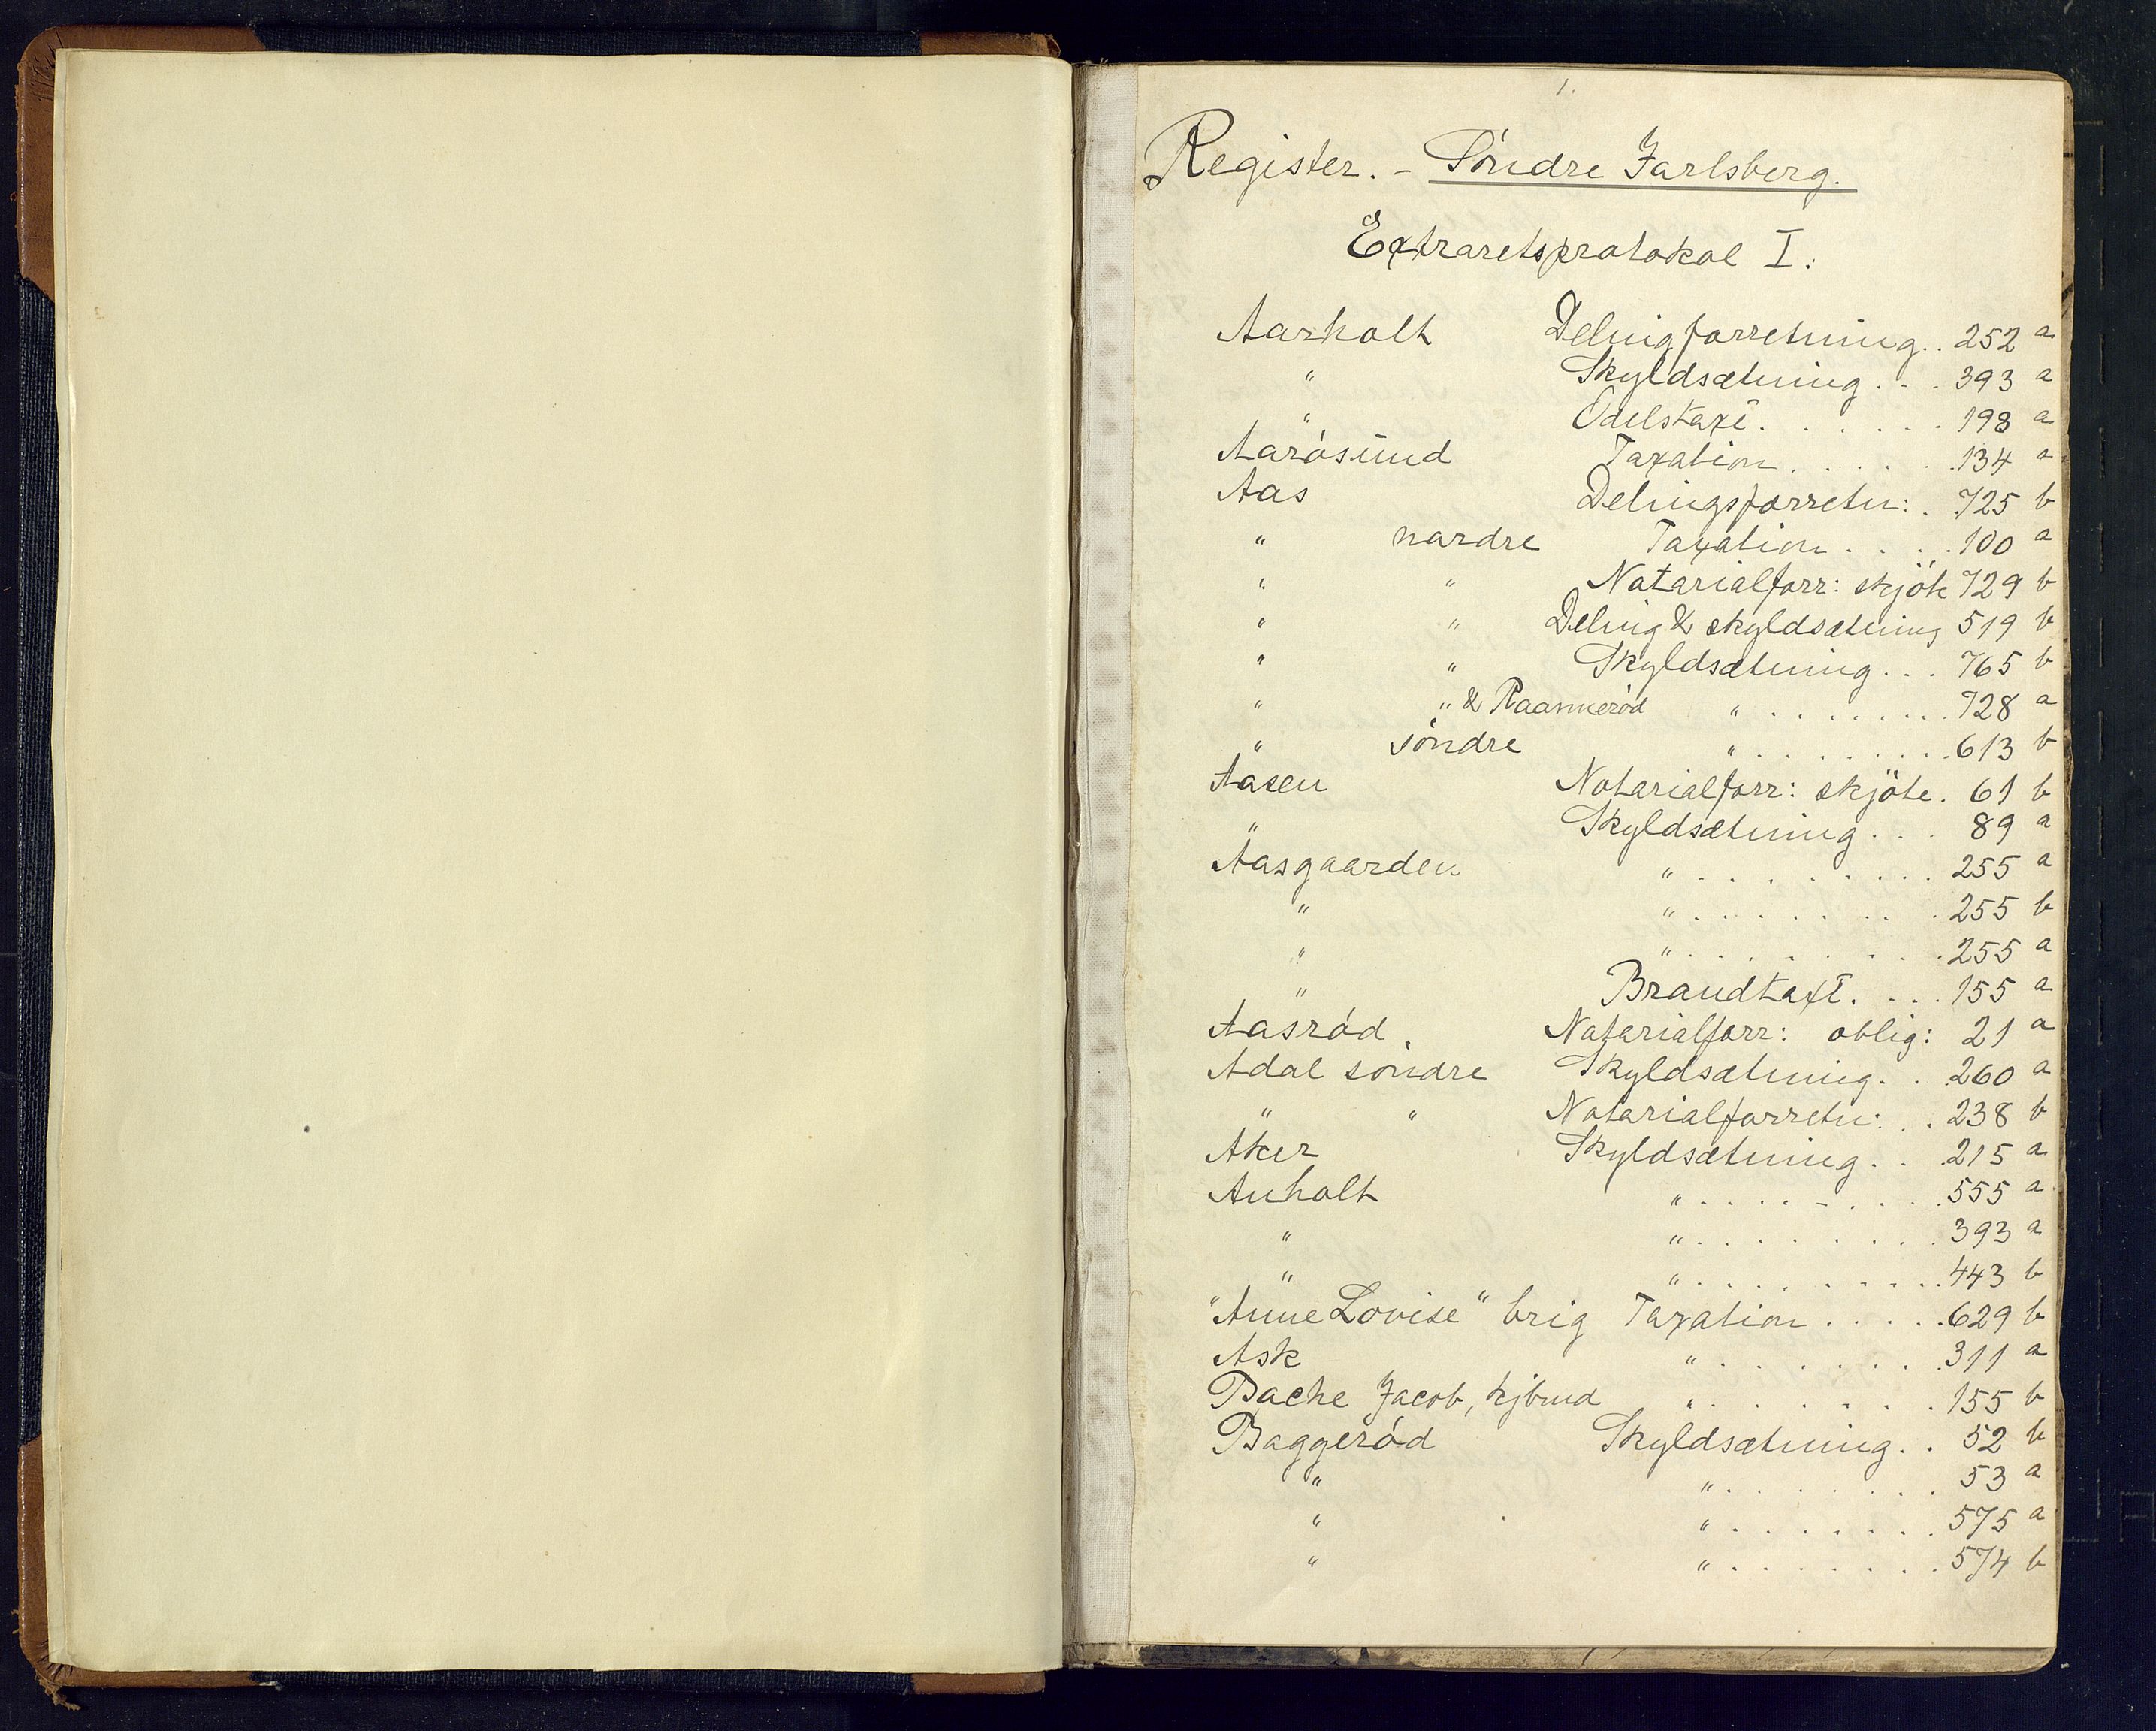 1.
Register. - Söndre Jarlsberg.
Extraretsprotokol I.
Aarholt Delingforretning. . 252 a
" Skyldsætning . . . 393 a
" Odelstaxt . . . . . . 193 a
Aarösund Taxation . . . . . 134 a
Aas Delingsforretn: . 725 b
" nordre Taxation . . . . 100 a
" " Notarialforr: skjöte 729 b
" " Deling & skyldsætning 519 b
" " Skyldsætning . . . 765 b
" " & Raannerød " . . . . . . . . 728 a
" söndre " . . . . . . . . 613 b
Aasen Notarialforr: skjöte . 61 b
" Skyldsætning . . . 89 a
Aasgaarden " . . . . . . . . . 255 a
" " . . . . . . . . . 255 b
" " . . . . . . . . . 255 a
" Brandtaxt. . . . 155 a
Aasröd. Notarialforr: oblig: 21 a
Adal söndre Skyldsætning. . 260 a
" " Notarialforretn: . . 238 b
Aker Skyldsætning. . . 215 a
Anholt " . . . . - . . . . 555 a
" " . . . . . . . . . 393 a
" " . . . . . . . . . 443 b
"Anne Lovise" brig Taxation . . . . . 629 b
Ask " . . . . . . . . 311 a
Bache Jacob, kjbmd " . . . . . . . . 155 b
Baggeröd Skyldsætning. . 52 b
" " . . . . . . . . 53 a
" " . . . . . . . . 575 a
" " . . . . . . . . 574 b